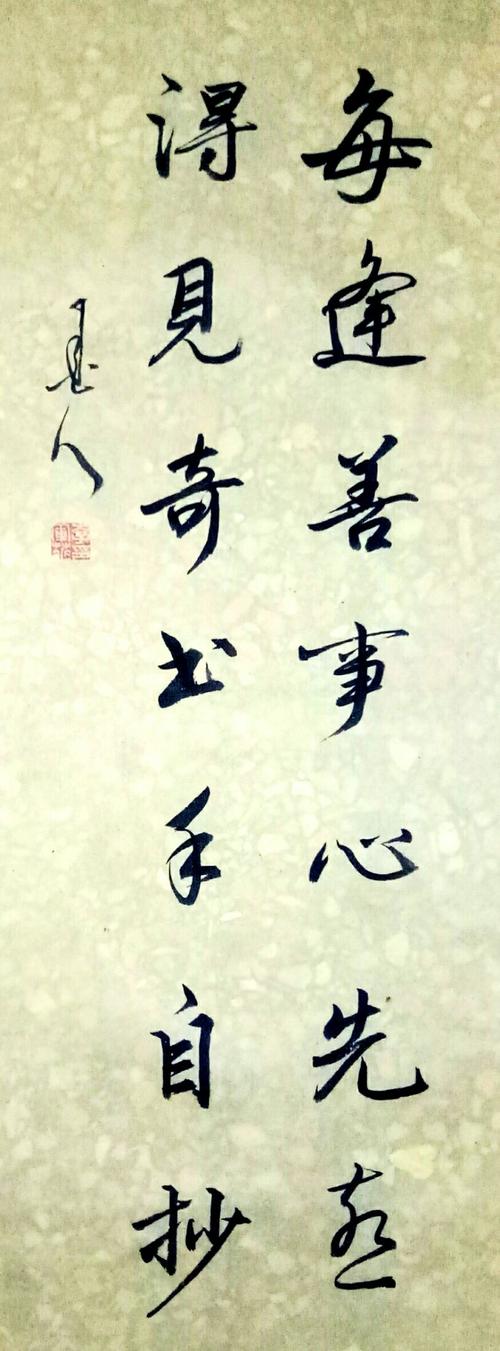 每逢善事心先喜
得見奇书手自抄
墨人